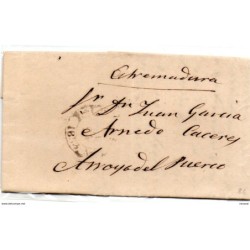 Estremadura
Sr Dn Juan Garcia
Arnedo Caceres
Arroyo del Puerco